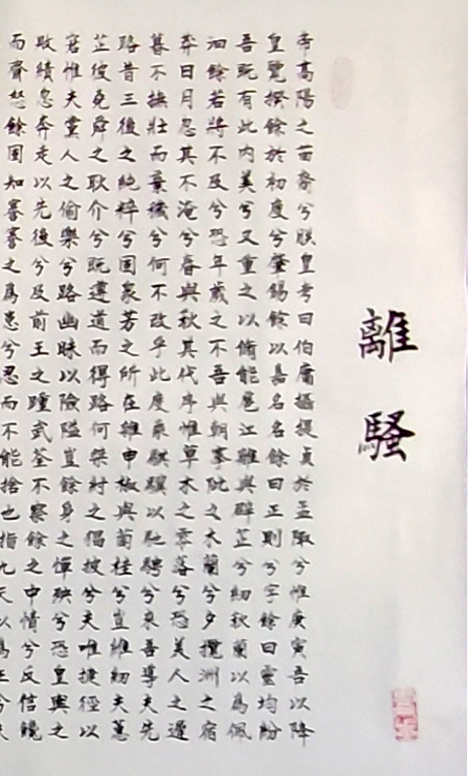 離騷
帝高陽之苗裔兮朕皇考曰伯庸攝提貞於孟陬兮惟庚寅吾以降
皇覽揆餘於初度兮肇錫餘以嘉名名餘曰正則兮字餘曰靈均紛
吾既有此內美兮又重之以脩能扈江離與辟芷兮紉秋蘭以為佩
汩餘若將不及兮恐年歲之不吾與朝搴阰之木蘭兮夕攬洲之宿
莽日月忽其不淹兮春與秋其代序惟草木之零落兮恐美人之遲
暮不撫壯而棄穢兮何不改乎此度乘騏驥以馳騁兮來吾導夫先
路昔三後之純粹兮固眾芳之所在雜申椒與菌桂兮豈維紉夫蕙
芷彼堯舜之耿介兮既遵道而得路何桀紂之猖披兮夫唯捷徑以
窘惟夫黨人之偷樂兮路幽昧以險隘豈餘身之憚殃兮恐皇輿之
敗績忽奔走以先後兮及前王之踵武荃不察餘之中情兮反信讒
而齌怒餘固知謇謇之為患兮忍而不能捨也指九天以為正兮夫